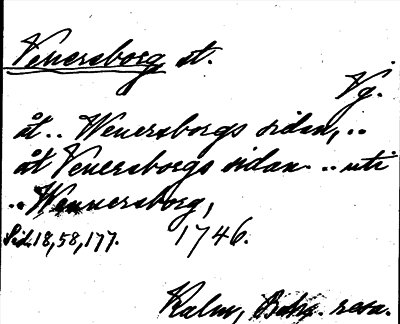 Venersborg st.
Vg.
åt .. Wenersborgs sidan, ..
åt Venersborgs sidan .. uti
.. Wennersborg,
Sid. 18, 58, 177. 1746.
Kalm, Bahs. resa.